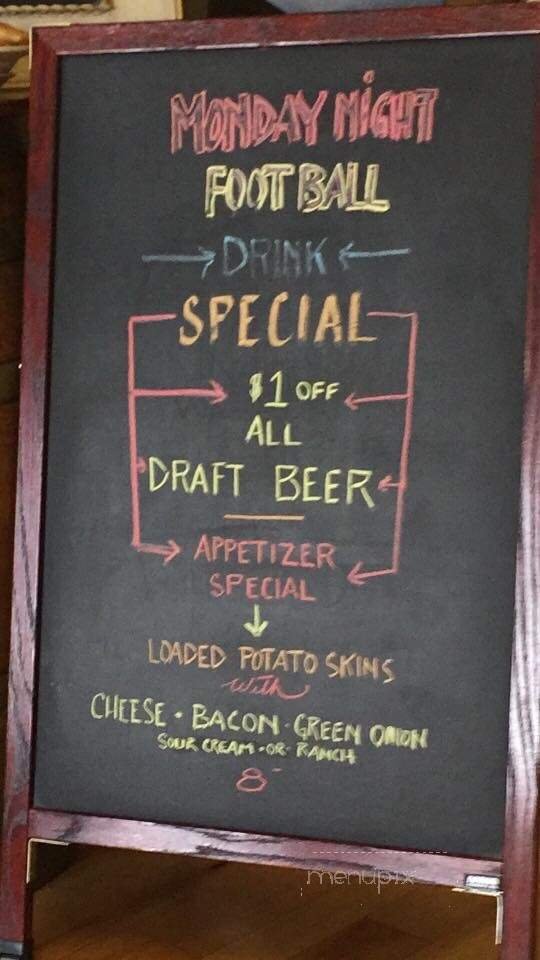 MONDAY NIGHT
FOOTBALL
DRINK
SPECIAL
$1 OFF
ALL
DRAFT BEER
APPETIZER
SPECIAL
LOADED POTATO SKINS
with
CHEESE • BACON • GREEN ONION
SOUR CREAM • OR • RANCH
8-
menupix